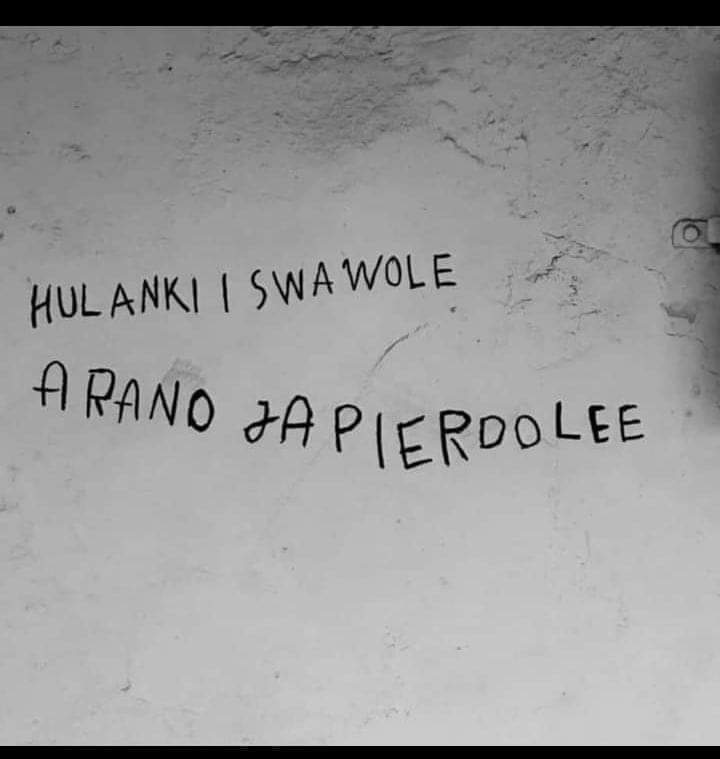 HULANKI I SWAWOLE
A RANO JA PIERDOLEE